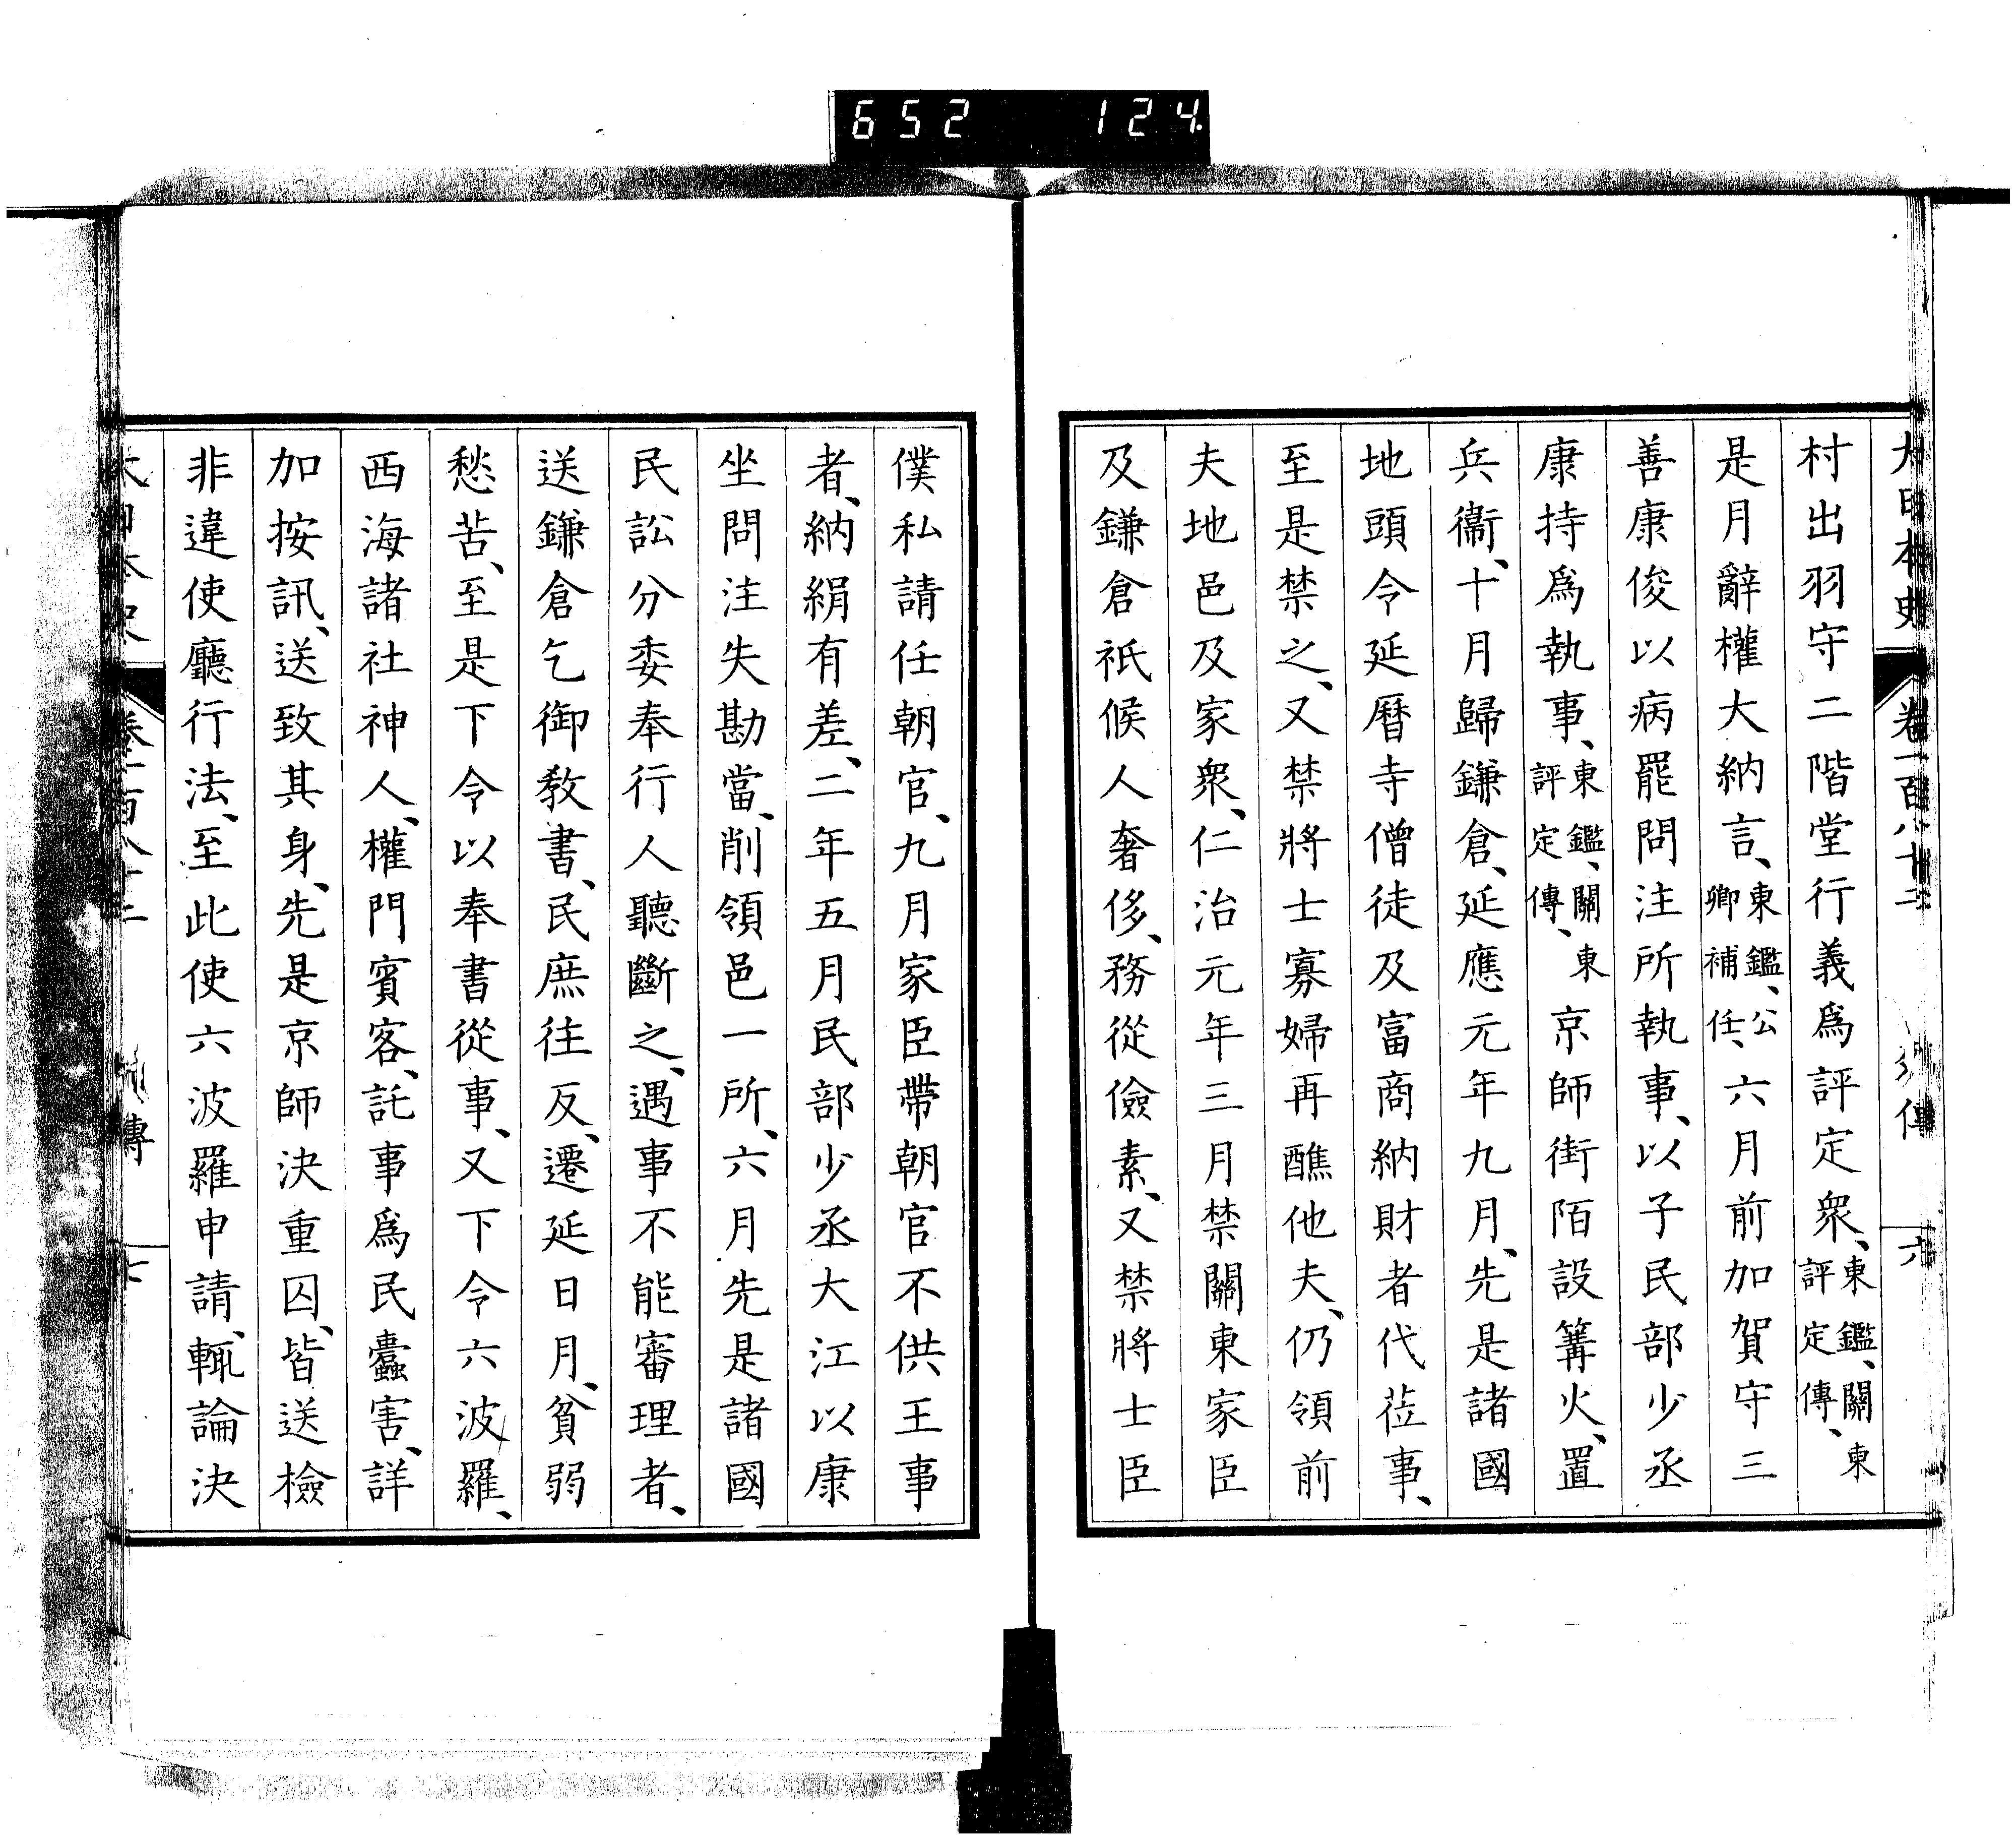 652 124
大日本史 卷一百八十二 列傳 六
村出羽守二階堂行義爲評定衆、東鑑、關東評定傳、
是月辭權大納言、東鑑、公卿補任、六月前加賀守三
善康俊以病罷問注所執事、以子民部少丞
康持爲執事、東鑑、關東評定傳、京師街陌設篝火、置
兵衞、十月歸鎌倉、延應元年九月、先是諸國
地頭令延曆寺僧徒及富商納財者代莅事、
至是禁之、又禁將士寡婦再醮他夫、仍領前
夫地邑及家衆、仁治元年三月禁關東家臣
及鎌倉祇候人奢侈、務從儉素、又禁將士臣
僕私請任朝官、九月家臣帶朝官不供王事
者、納絹有差、二年五月民部少丞大江以康
坐問注失勘當、削領邑一所、六月先是諸國
民訟分委奉行人聽斷之、遇事不能審理者、
送鎌倉乞御教書、民庶往反、遷延日月、貧弱
愁苦、至是下令以奉書從事、又下令六波羅、
西海諸社神人、權門賓客、託事爲民蠹害、詳
加按訊、送致其身、先是京師決重囚、皆送檢
非違使廳行法、至此使六波羅申請、輒論決